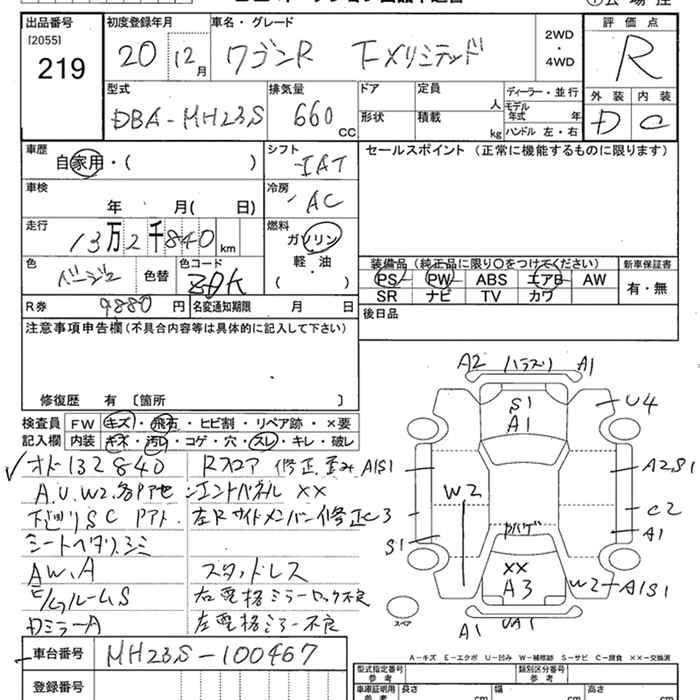 出品番号
[2055]
219
初度登録年月
20 12月
車名・グレード
ワゴンR F-Xリミテッド
2WD
・
4WD
評価点
R
型式
DBA-MH23S
排気量
660 CC
ドア
形状
定員 人
積載 kg
ディーラー・並行
モデル年式 年
ハンドル 左・右
外装 内装
D C
車歴
自家用・( )
シフト
IAT
セールスポイント (正常に機能するものに限ります)
車検
年 月( 日)
冷房
AC
走行
13万2千840km
燃料
ガソリン
軽・油
( )
色
ベージュ
色替
色コード
装備品 (純正品に限り○をつけてください)
PS PW ABS エアB AW
SR ナビ TV カワ
新車保証書
有・無
R券 9880円
名変通知期限 月 日
後日品
注意事項申告欄 (不具合内容等は具体的に記入して下さい)
修復歴 有 〔箇所 〕
検査員記入欄
FW キズ・飛石・ヒビ割・リペア跡・×要
内装 キズ・汚レ・コゲ・穴・スレ・キレ・破レ
オド132840
A.U.W2.各Pアセ
下廻りSC Pアト.
シートヘタリ.シミ
AW.A
ルームS
ミラーA
Rフロア 修正 歪み
エンドパネル ××
左Rサイドメンバー修正
スタッドレス
右電格ミラーロック不良
左電格ミラー不良
A2 (ハラズレ) A1
S1
A1
U4
A1S1
A2.S1
W2
C3
C2
A1
S1
××
A3
W2
A1S1
A1
UA1
スペア
A-キズ E-エクボ U-凹み W-補修跡 S-サビ C-腐食 ××-交換済
車台番号
MH23S-100467
登録番号
型式指定番号
類別区分番号
車庫証明用参考
長さ cm
幅 cm
高さ cm